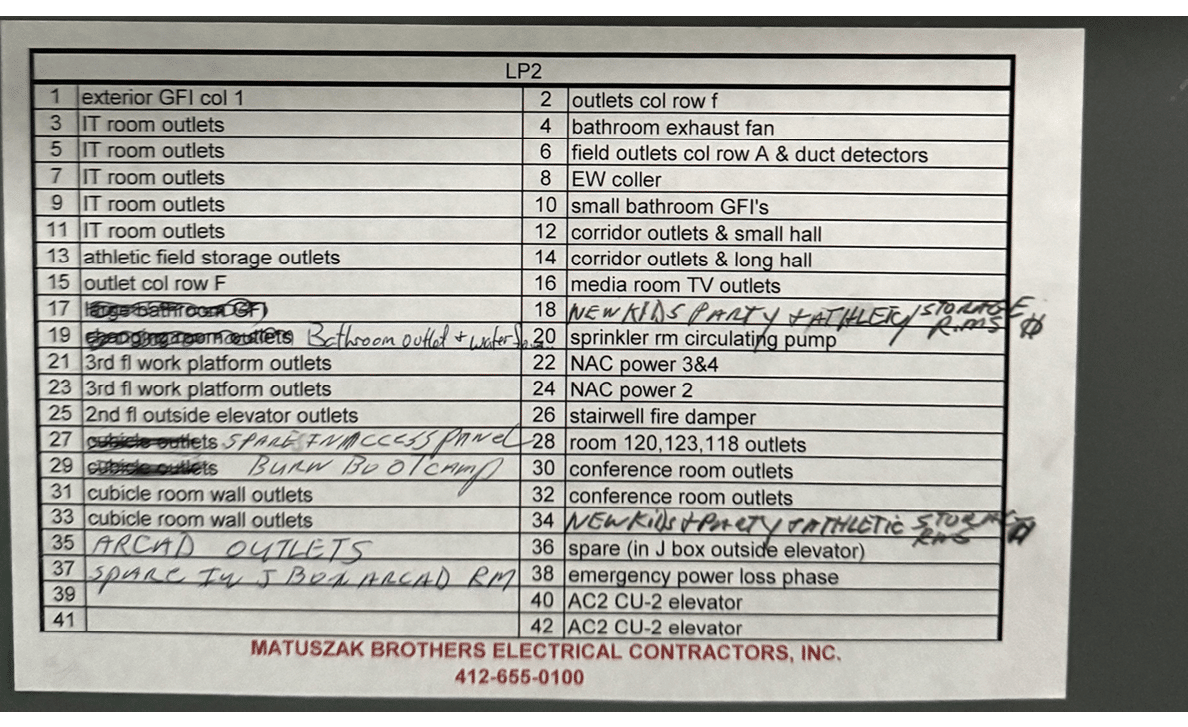 LP2
1 exterior GFI col 1 2 outlets col row f
3 IT room outlets 4 bathroom exhaust fan
5 IT room outlets 6 field outlets col row A & duct detectors
7 IT room outlets 8 EW coller
9 IT room outlets 10 small bathroom GFI's
11 IT room outlets 12 corridor outlets & small hall
13 athletic field storage outlets 14 corridor outlets & long hall
15 outlet col row F 16 media room TV outlets
17 large bathroom GFI 18 NEW KIDS PARTY + ATHLETC/STORAGE RMS
19 changing room outlets Bathroom outlet + water 20 sprinkler rm circulating pump
21 3rd fl work platform outlets 22 NAC power 3&4
23 3rd fl work platform outlets 24 NAC power 2
25 2nd fl outside elevator outlets 26 stairwell fire damper
27 cubicle outlets SPARE IN ACCESS PANEL 28 room 120,123,118 outlets
29 cubicle outlets BURN BOOTCAMP 30 conference room outlets
31 cubicle room wall outlets 32 conference room outlets
33 cubicle room wall outlets 34 NEW KIDS + PARTY + ATHLETIC STORAGE RMS
35 ARCAD OUTLETS 36 spare (in J box outside elevator)
37 SPARE IN J BOX ARCAD RM 38 emergency power loss phase
39 40 AC2 CU-2 elevator
41 42 AC2 CU-2 elevator
MATUSZAK BROTHERS ELECTRICAL CONTRACTORS, INC.
412-655-0100